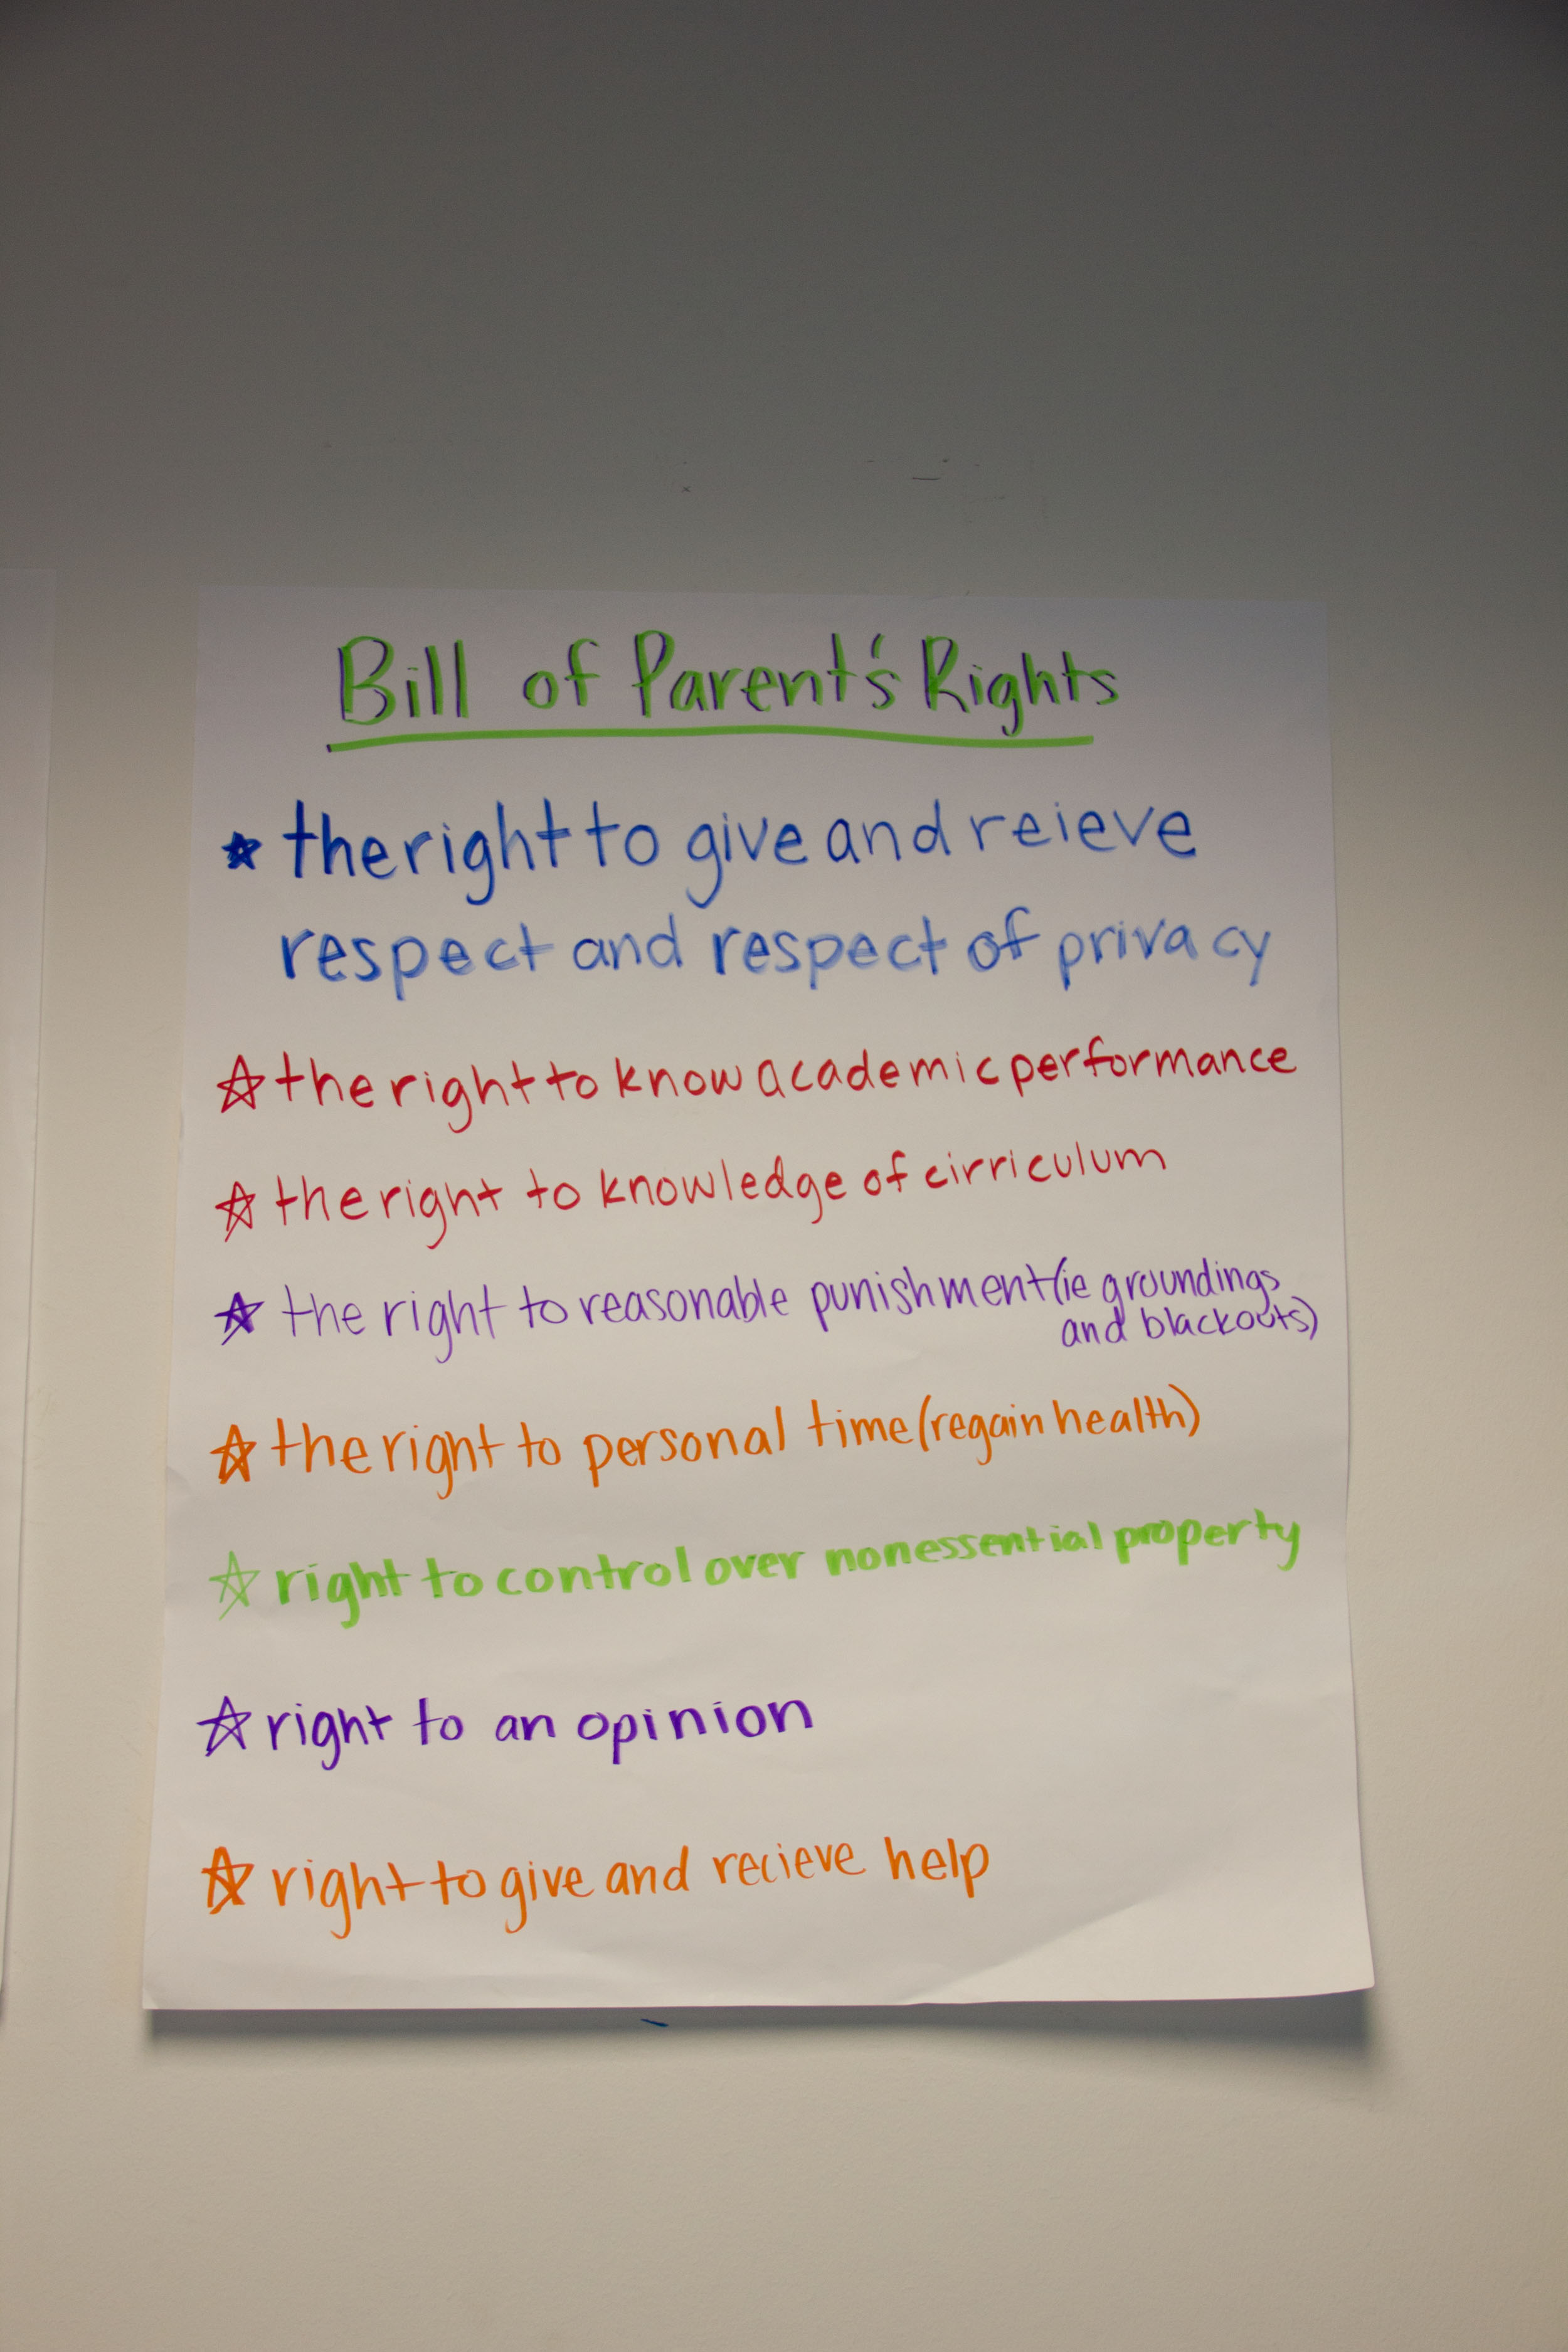 Bill of Parent's Rights
the right to give and reieve
respect and respect of privacy
the right to know academic performance
the right to knowledge of cirriculum
the right to reasonable punishment (ie groundings
and blackouts)
the right to personal time (regain health)
right to control over nonessential property
right to an opinion
right to give and recieve help